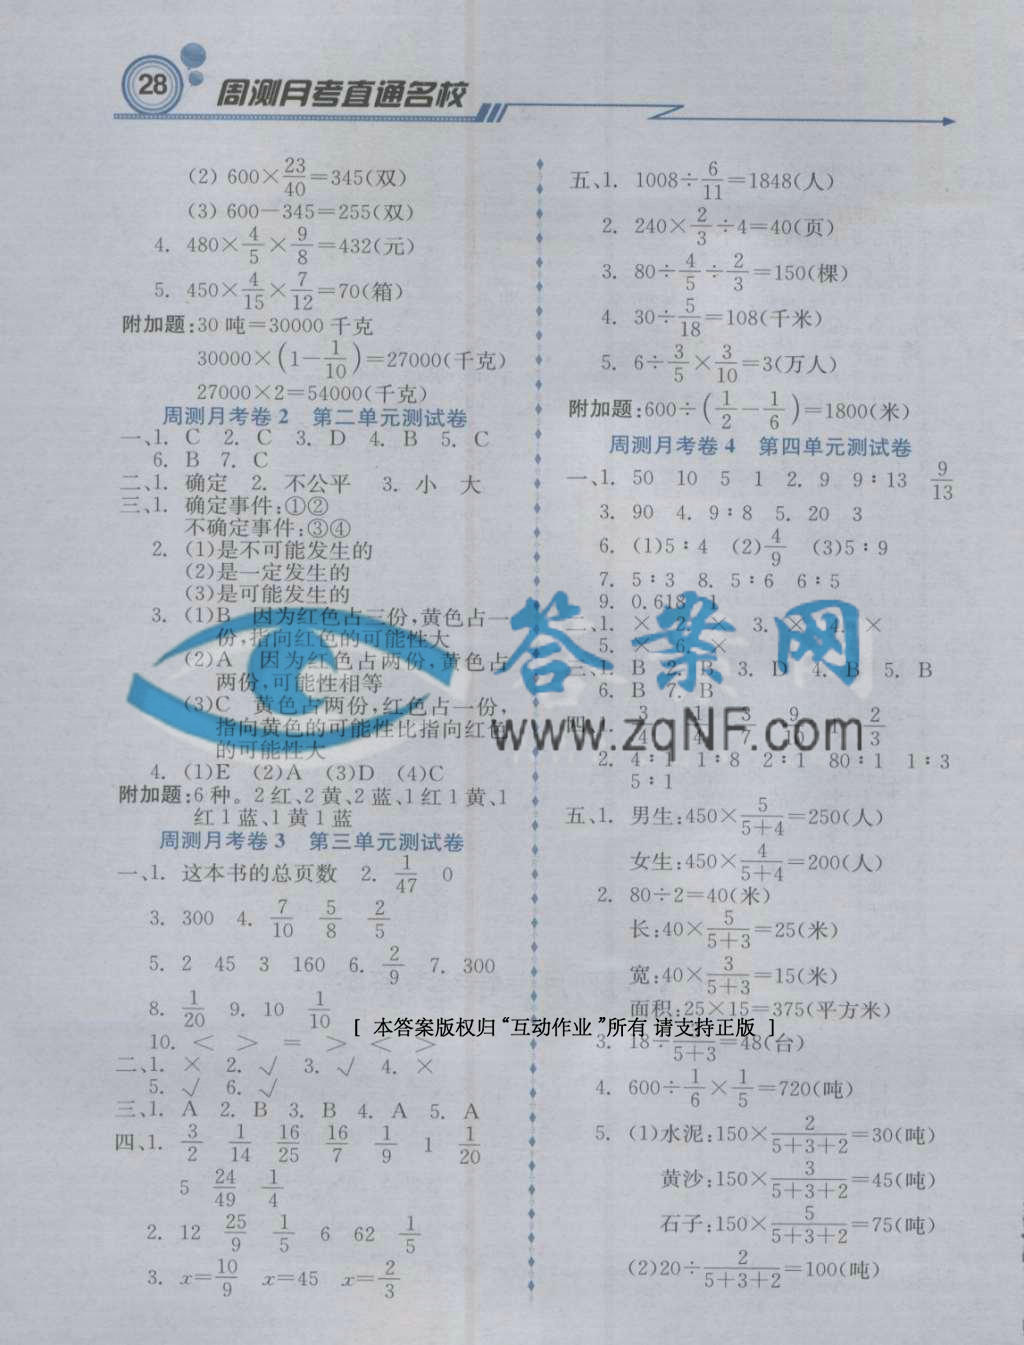 28
周测月考直通名校
(2) 600×23/40=345(双)
(3) 600-345=255(双)
4. 480×4/5×9/8=432(元)
5. 450×4/15×7/12=70(箱)
附加题:30 吨=30000 千克
30000×(1-1/10)=27000(千克)
27000×2=54000(千克)
周测月考卷2 第二单元测试卷
一、1. C 2. C 3. D 4. B 5. C
6. B 7. C
二、1. 确定 2. 不公平 3. 小 大
三、1. 确定事件:①②
不确定事件:③④
2. (1)是不可能发生的
(2)是一定发生的
(3)是可能发生的
3. (1)B 因为红色占三份,黄色占一
份,指向红色的可能性大
(2)A 因为红色占两份,黄色占
两份,可能性相等
(3)C 黄色占两份,红色占一份,
指向黄色的可能性比指向红色
的可能性大
4. (1)E (2)A (3)D (4)C
附加题:6种。2红、2黄、2蓝、1红1黄、1
红1蓝、1黄1蓝
周测月考卷3 第三单元测试卷
一、1. 这本书的总页数 2. 1/47 0
3. 300 4. 7/10 5/8 2/5
5. 2 45 3 160 6. 2/9 7. 300
8. 1/20 9. 10 1/10
10. < > = > < >
二、1. × 2. √ 3. √ 4. ×
5. √ 6. √
三、1. A 2. B 3. B 4. A 5. A
四、1. 3/2 1/14 16/25 16/7 1/9 1 1/20
5 24/49 1/4
2. 12 25/9 1/5 6 62 1/5
3. x=10/9 x=45 x=2/3
五、1. 1008÷6/11=1848(人)
2. 240×2/3÷4=40(页)
3. 80÷4/5÷2/3=150(棵)
4. 30÷5/18=108(千米)
5. 6÷3/5×3/10=3(万人)
附加题:600÷(1/2-1/6)=1800(米)
周测月考卷4 第四单元测试卷
一、1. 50 10 5 1 2. 9 9∶13 9/13
3. 90 4. 9∶8 5. 20 3
6. (1)5∶4 (2)4/9 (3)5∶9
7. 5∶3 8. 5∶6 6∶5
9. 0.618 1
二、1. × 2. × 3. × 4. ×
5. × 6. ×
三、1. B 2. B 3. D 4. B 5. B
6. B 7. B
四、1. 2/3
2. 4∶1 1∶8 2∶1 80∶1 1∶3
5∶1
五、1. 男生:450×5/(5+4)=250(人)
女生:450×4/(5+4)=200(人)
2. 80÷2=40(米)
长:40×5/(5+3)=25(米)
宽:40×3/(5+3)=15(米)
面积:25×15=375(平方米)
[ 本答案版权归“互动作业”所有 请支持正版 ]
3. 18÷ /(5+3)=48(台)
4. 600÷1/6×1/5=720(吨)
5. (1)水泥:150×2/(5+3+2)=30(吨)
黄沙:150×3/(5+3+2)=45(吨)
石子:150×5/(5+3+2)=75(吨)
(2)20÷2/(5+3+2)=100(吨)
答案网
www.zqNF.com